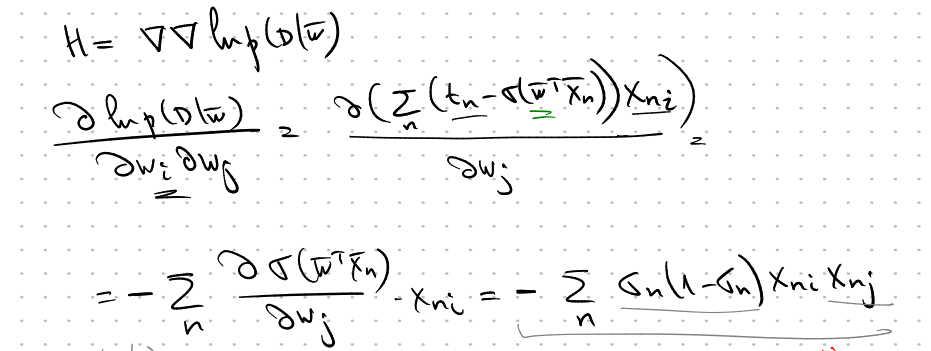 H = ∇∇ ln p(D|w̄)
∂ ln p(D|w̄) / ∂w_i ∂w_j = ∂(∑_n (t_n - σ(w̄ᵀx̄_n)) x_ni) / ∂w_j =
= - ∑_n ∂σ(w̄ᵀx̄_n) / ∂w_j · x_ni = - ∑_n σ_n(1-σ_n) x_ni x_nj